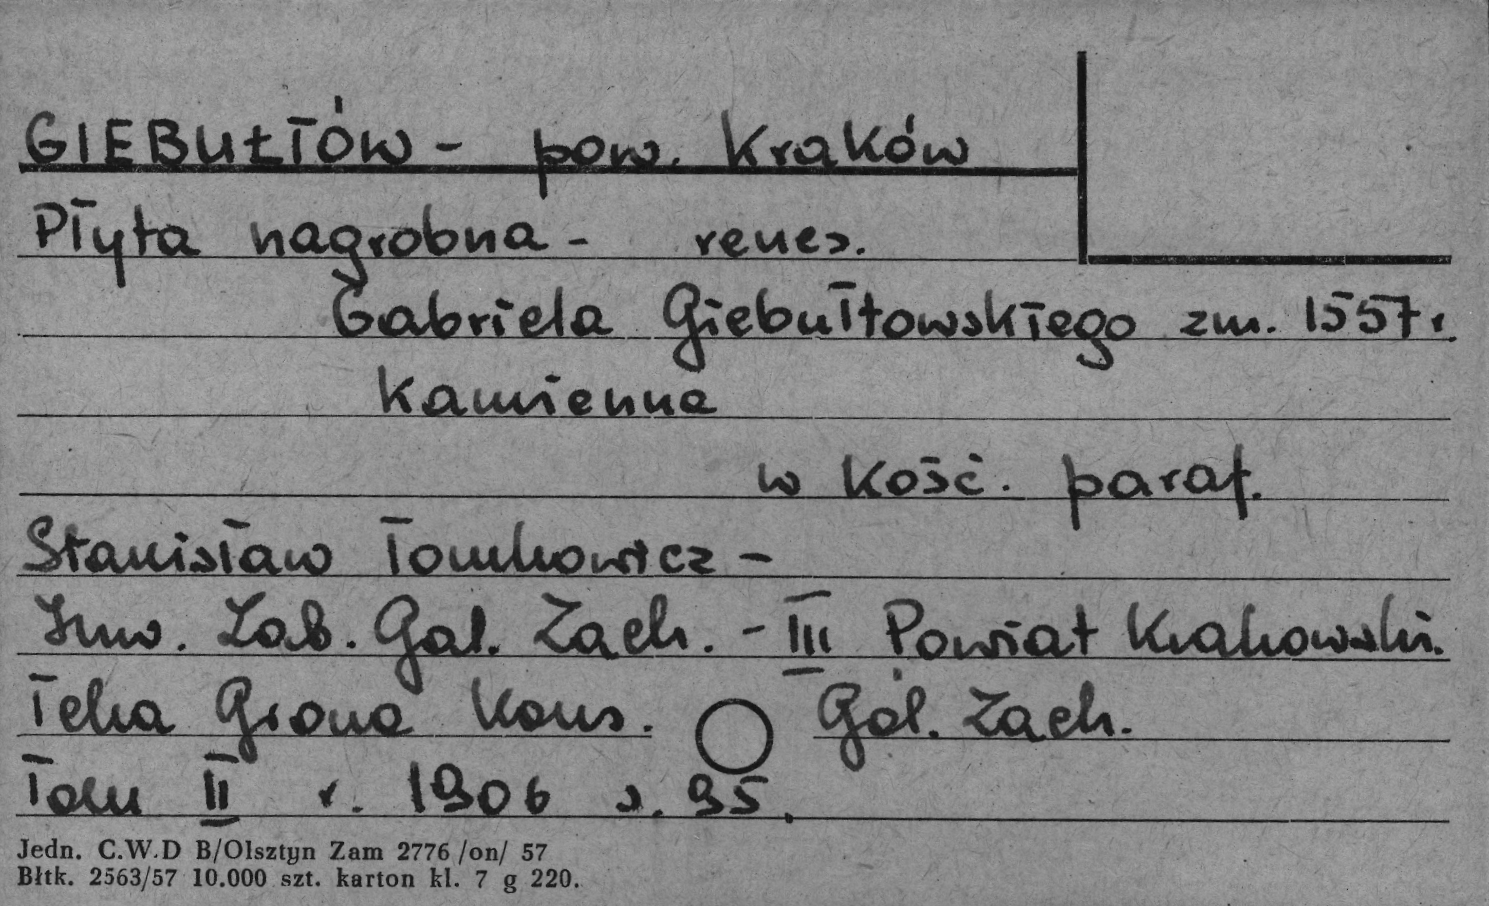 GIEBUŁTÓW - pow. Kraków
Płyta nagrobna - renes.
Gabriela Giebułtowskiego zm. 1557 r.
Kamienna
w kość. paraf.
Stanisław Tomkowicz -
Inw. Zab. Gal. Zach. - III Powiat Krakowski.
Teka Grona Kons. Gal. Zach.
Tom II r. 1906 s. 95.
Jedn. C.W.D B/Olsztyn Zam 2776 /on/ 57
Błtk. 2563/57 10.000 szt. karton kl. 7 g 220.